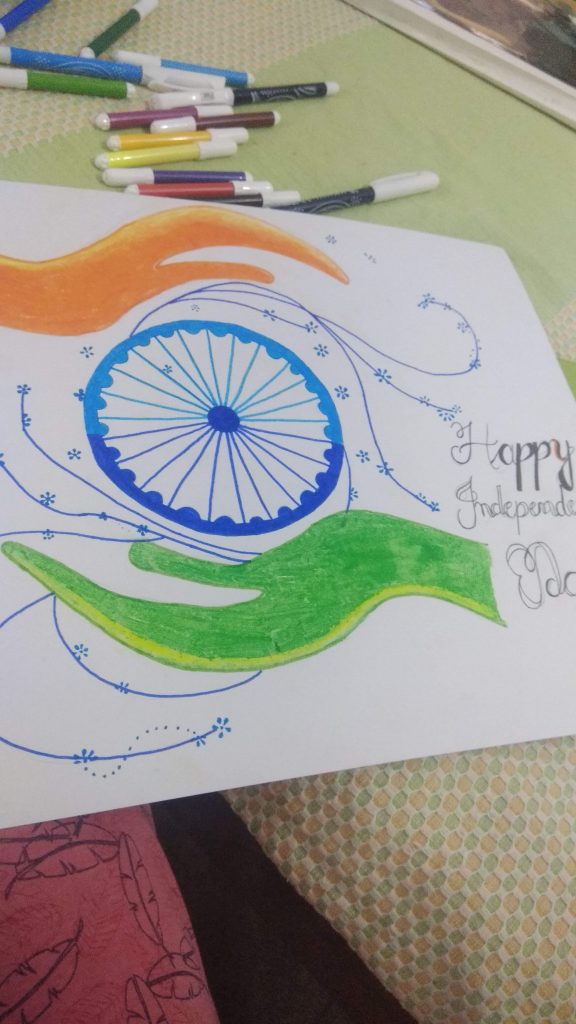 Happy
Independe
Da